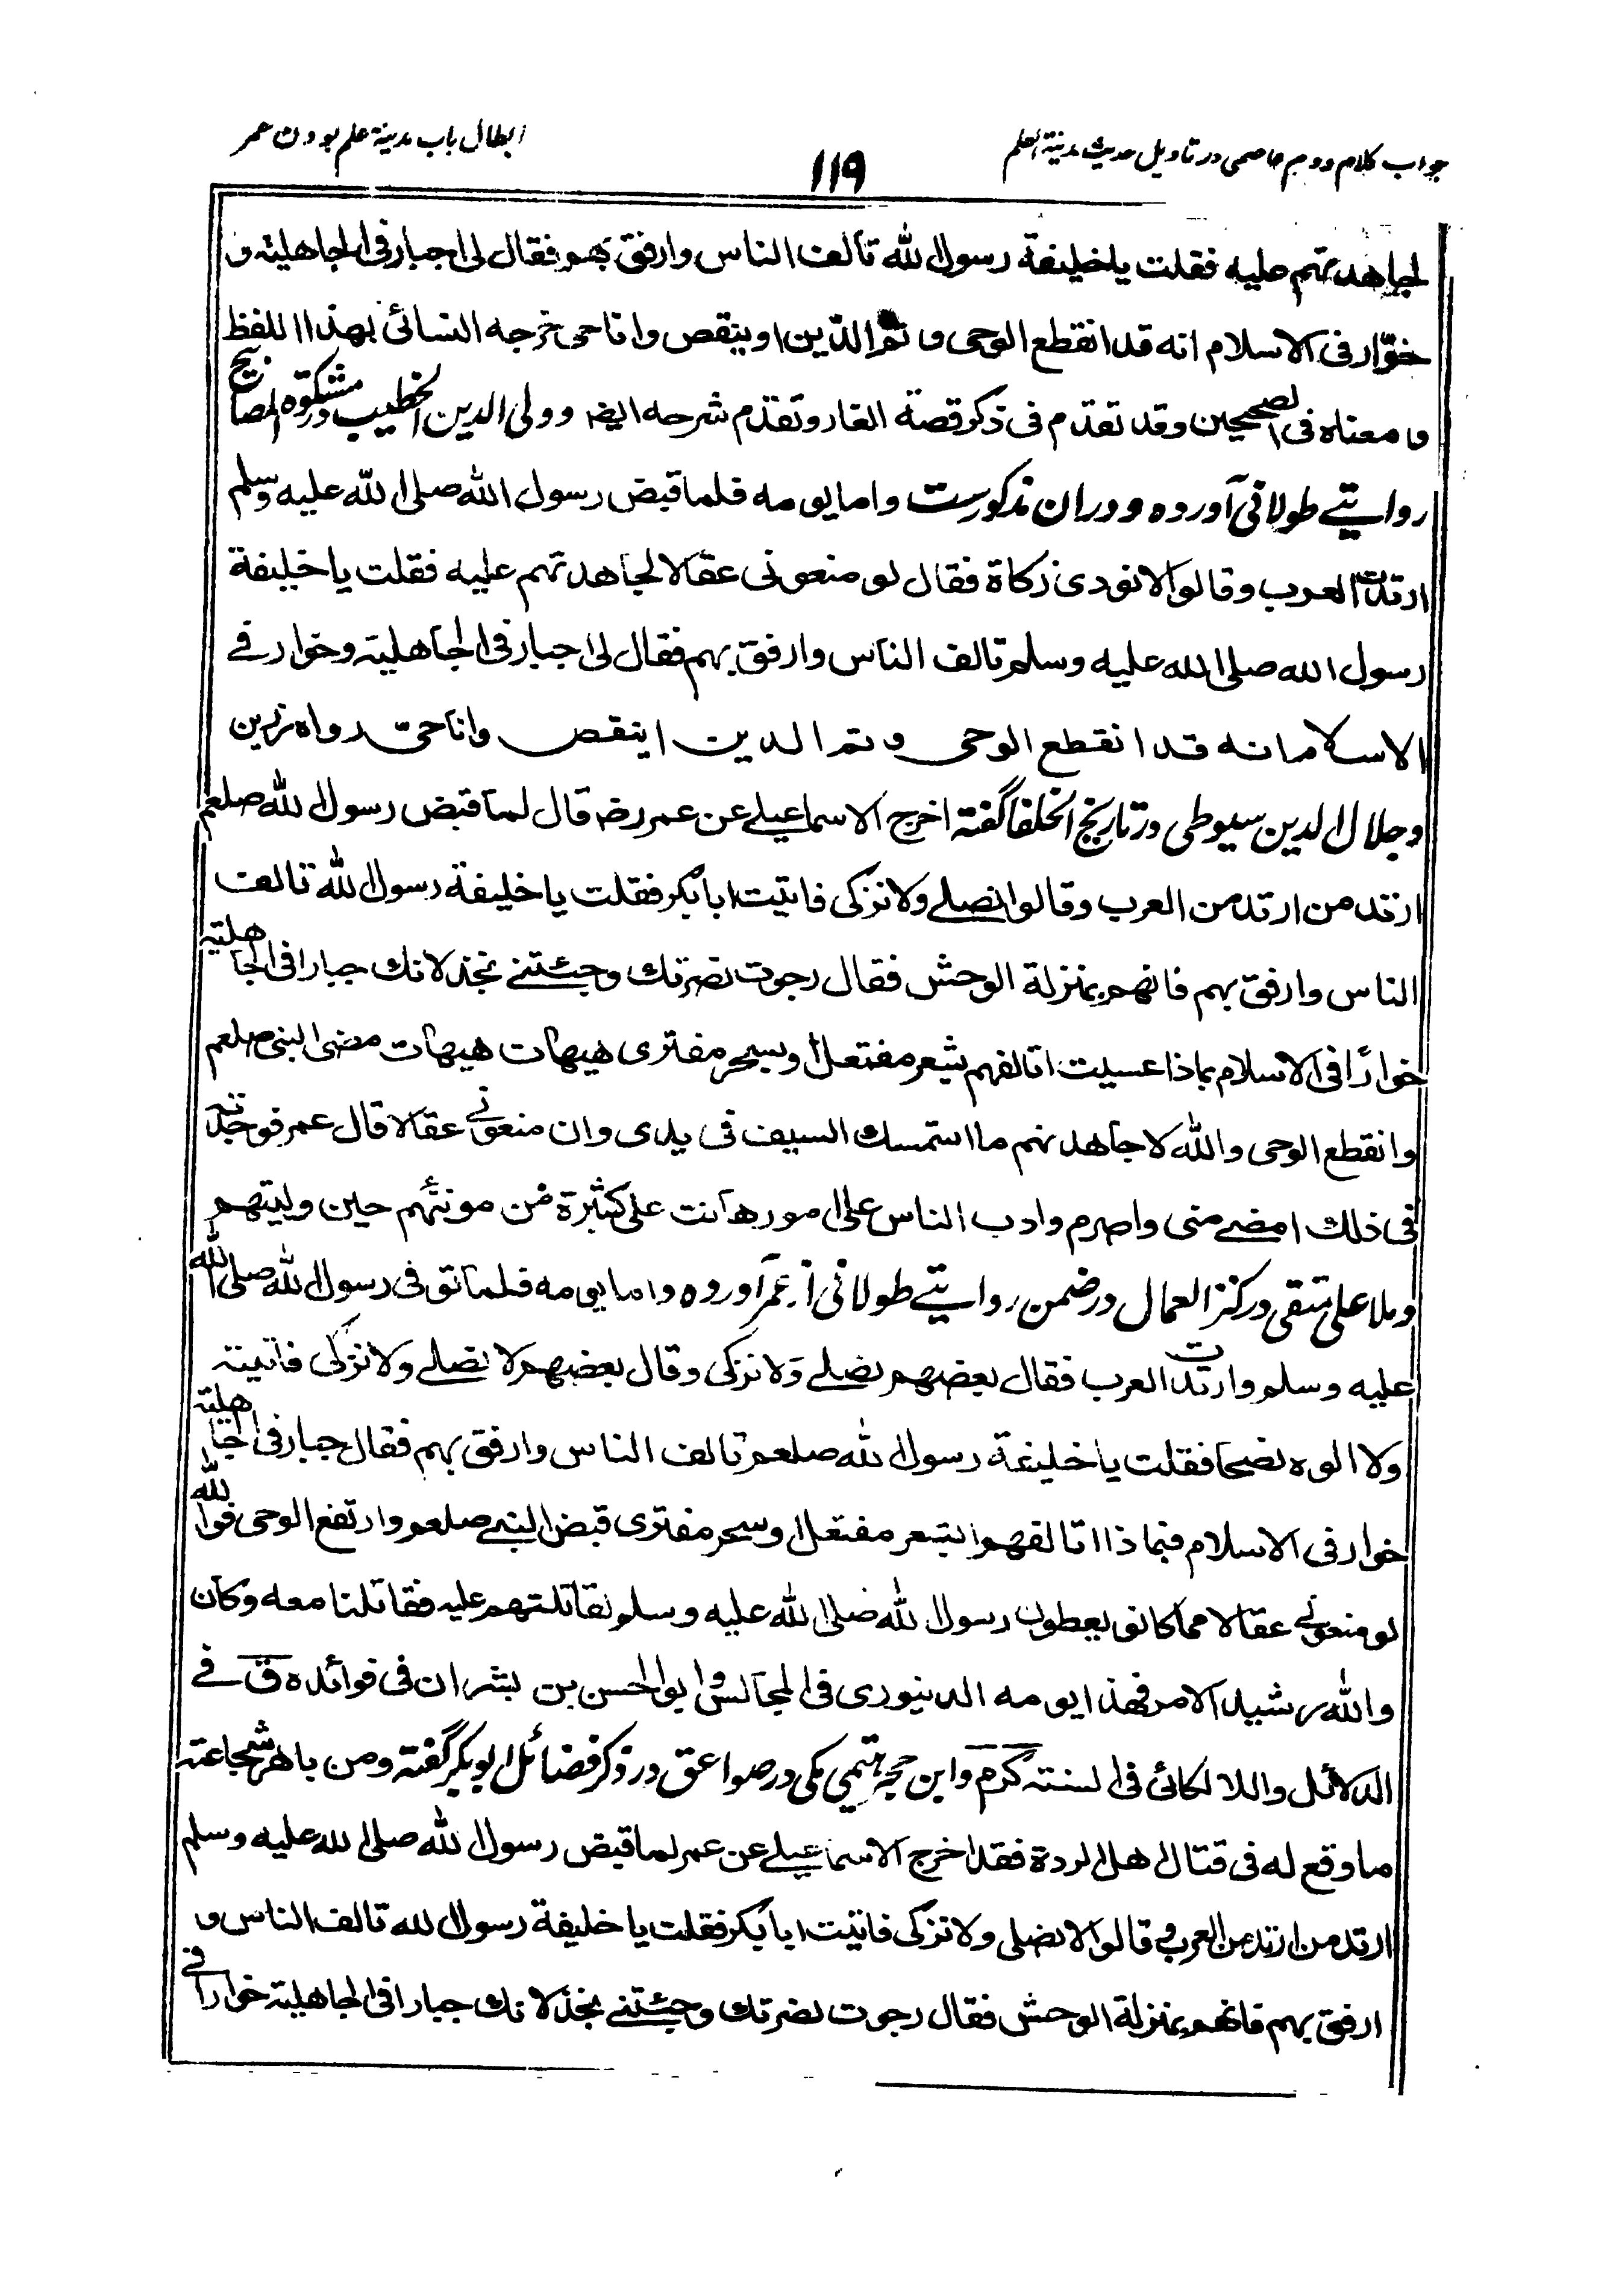 جواب کلام دوم عاصمی در تاویل حدیث مدینة العلم
۱۱۹
ابطال باب مدینة علم بودن عمر
لجاهدتهم علیه فقلت یا خلیفة رسول الله تألف الناس وارفق بهم فقال لی اجبار فی الجاهلیة و
خوّار فی الاسلام انه قد انقطع الوحی و تم الدّین او ینقص وانا حی خرجه النسائی بهذا اللفظ
و معناه فی الصحیحین وقد تقدم فی ذکر قصة الغار وتقدم شرحه ایضا و ولی الدین الخطیب در مشکوة المصابیح
روایتے طولانی آورده و دران مذکورست واما یومه فلما قبض رسول الله صلی الله علیه وسلم
ارتدت العرب وقالوا لا نودی زکاة فقال لو منعونی عقالا لجاهدتهم علیه فقلت یا خلیفة
رسول الله صلی الله علیه وسلم تالف الناس وارفق بهم فقال لی اجبار فی الجاهلیة وخوار فے
الاسلام انه قد انقطع الوحی و تم الدین اینقص وانا حیّ رواه رزین
وجلال الدین سیوطی در تاریخ الخلفا گفته اخرج الاسماعیلے عن عمر رضه قال لما قبض رسول الله صلعم
ارتد من ارتد من العرب وقالوا نصلے ولا نزکی فاتیت ابا بکر فقلت یا خلیفة رسول الله تالف
الناس وارفق بهم فانهم بمنزلة الوحش فقال رجوت نصرتک وجئتنے بخذلانک جبارا فی الجاهلیة
خوارًا فی الاسلام بماذا عسیت اتالفهم بشعر مفتعل او بسحر مفتری هیهات هیهات مضی النبی صلعم
وانقطع الوحی والله لاجاهدنهم ما استمسک السیف فی یدی وان منعونے عقالا قال عمر فوجدته
فی ذلک امضے منی واصرم وادب الناس علی امور هانت علی کثیرة من مونتهم حین ولیتهم
وملا علی متقی در کنز العمال در ضمن روایتے طولانی از عمر آورده واما یومه فلما توفی رسول الله صلی الله
علیه وسلم وارتدت العرب فقال بعضهم نصلے ولا نزکی وقال بعضهم لا نصلے ولا نزکی فاتیته
ولا الوه نصحا فقلت یا خلیفة رسول الله صلعم تالف الناس وارفق بهم فقال جبار فی الجاهلیة
خوار فی الاسلام فبماذا اتالفهم ابشعر مفتعل او سحر مفتری قبض النبے صلعم وارتفع الوحی فوالله
لو منعونے عقالا مما کانوا یعطون رسول الله صلی الله علیه وسلم لقاتلتهم علیه فقاتلنا معه وکان
والله رشید الامر فهذا یومه الدینوری فی المجالس و ابو الحسن بن بشران فی فوائده ق فے
الدلائل واللالکائی فی السنته کرم وابن حجر هیتمی مکی در صواعق در ذکر فضائل ابو بکر گفته ومن باهر شجاعته
ما وقع له فی قتال اهل الردة فقد اخرج الاسماعیلے عن عمر لما قبض رسول الله صلی الله علیه وسلم
ارتد من ارتد من العرب وقالوا لا نصلی ولا نزکی فاتیت ابا بکر فقلت یا خلیفة رسول الله تالف الناس و
ارفق بهم فانهم بمنزلة الوحش فقال رجوت نصرتک وجئتنے بخذلانک جبارا فی الجاهلیة خوارا فے